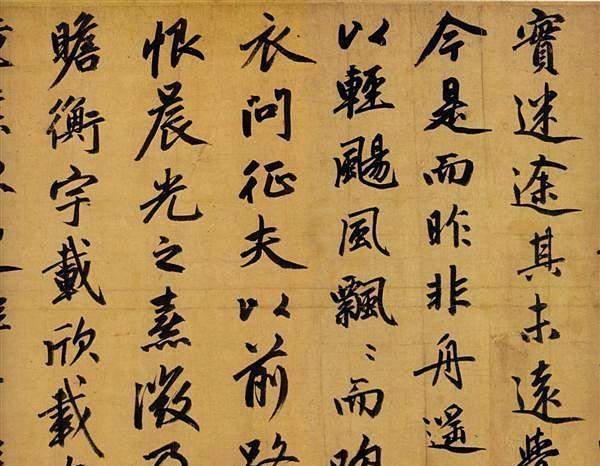 實迷途其未遠覺
今是而昨非舟遥
以輕颺風飄〻而吹
衣問征夫以前路
恨晨光之熹微乃
瞻衡宇載欣載